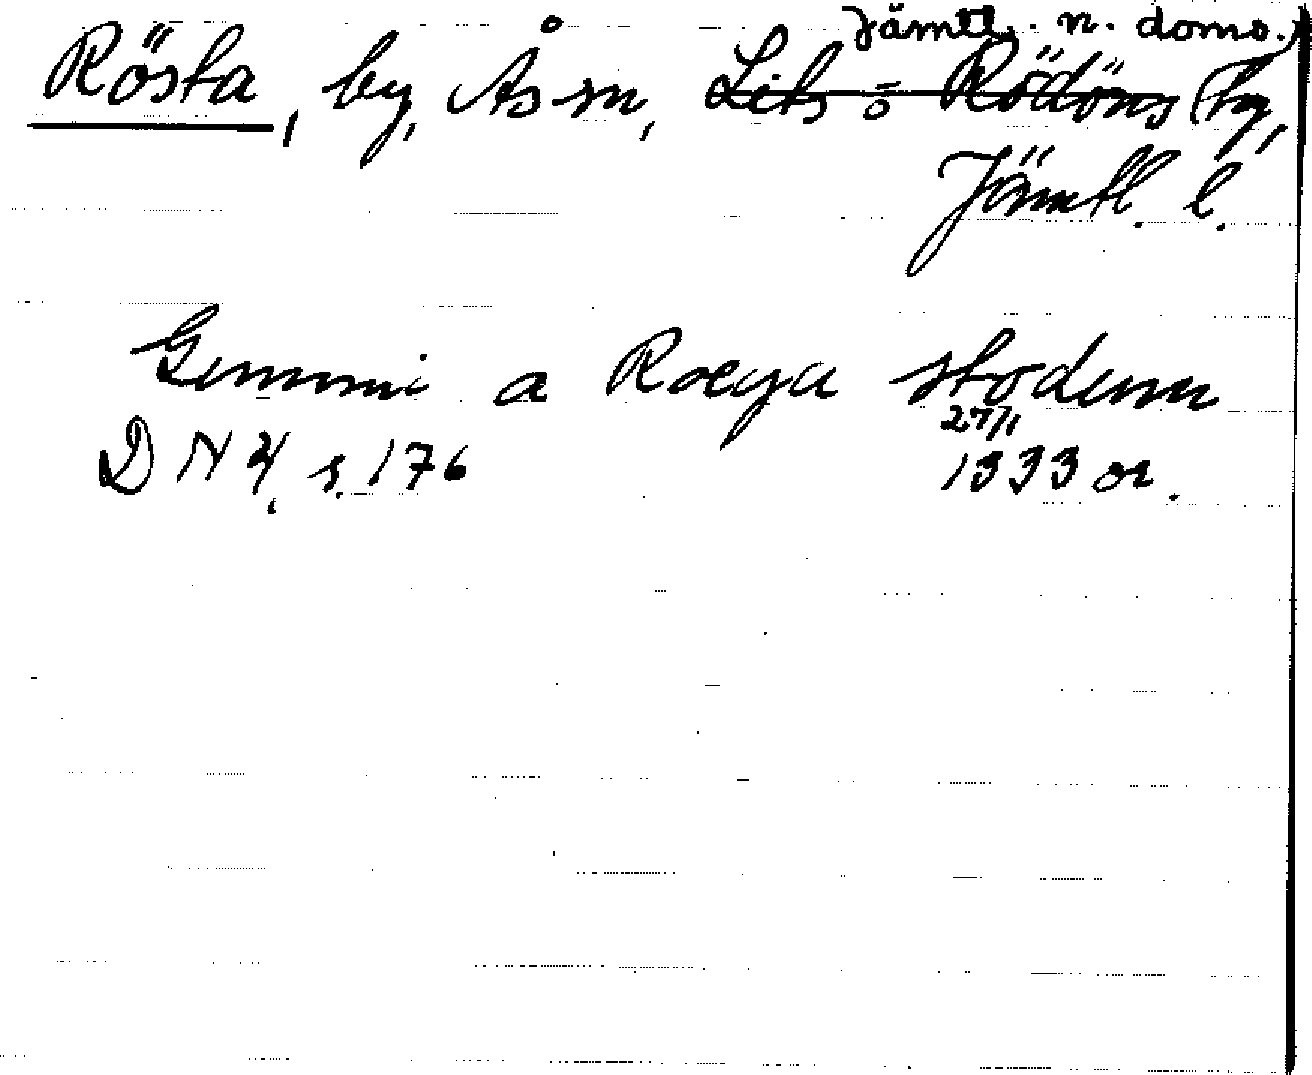 Jämtl. n. doms.
Rösta, by, Ås sn, Lits o Rödöns tg,
Jämtl. l.
Gummi a Roeyu stodum
27/1
DN 4, s. 176 1333 or.